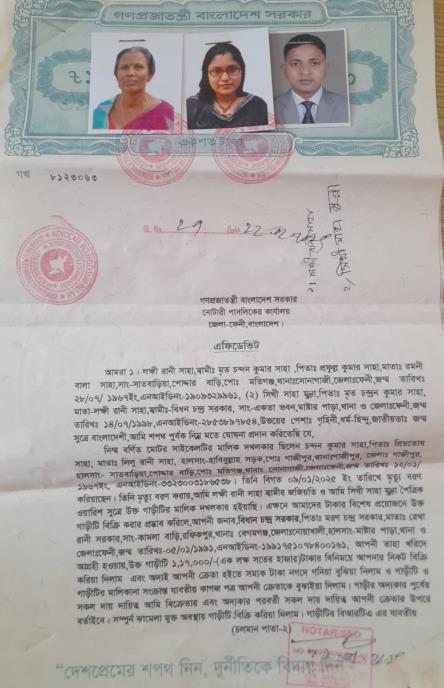 গণপ্রজাতন্ত্রী বাংলাদেশ সরকার
একশত টাকা
গখ ৮১২৩০৬৩
SL No. 29 Date 22
গণপ্রজাতন্ত্রী বাংলাদেশ সরকার
নোটারী পাবলিকের কার্যালয়
জেলা-ফেনী,বাংলাদেশ।
এফিডেভিট
আমরা ১। লক্ষী রানী সাহা,স্বামীঃ মৃত চন্দন কুমার সাহা ,পিতাঃ প্রফুল্ল কুমার সাহা,মাতাঃ রমনী
বালা সাহা,সাং-সাতবাড়িয়া,পোদ্দার বাড়ি,পোঃ মতিগঞ্জ,থানাঃসোনাগাজী,জেলাঃফেনী,জন্ম তারিখঃ
২৮/০৭/ ১৯৬৭ইং,এনআইডিনং-১৯০৯৩২৯৯৬১, (২) সিথী সাহা মুন্না,পিতাঃ মৃত চন্দন কুমার সাহা,
মাতা-লক্ষী রানী সাহা,স্বামীঃ-বিধন চন্দ্র সরকার, সাং-একতা ভবন,মাষ্টার পাড়া,থানা ও জেলাঃফেনী,জন্ম
তারিখঃ ১৪/০৭/১৯৯৮,এনআইডিনং-২৮৫৩৮৯৭৮৫৪,উভয়ের পেশাঃ গৃহিনী,ধর্ম-হিন্দু,জাতীয়তাঃ জন্ম
সুত্রে বাংলাদেশী,আমি শপথ পুর্বক নিম্ন মতে ঘোষনা প্রদান করিতেছি যে,
নিম্ন বর্ণিত মোটর সাইকেলটির মালিক দখলকার ছিলেন চন্দন কুমার সাহা,পিতাঃ প্রিয়তোষ
সাহা, মাতাঃ লিলু রানী সাহা, হালসাং-হাবিবুল্লাহ সড়ক,পোঃ গাজীপুর,থানাঃগাজীপুর, জেলাঃ গাজীপুর,
হালসাং- সাতবাড়িয়া,পোদ্দার বাড়ি,পোঃ মতিগঞ্জ,থানাঃ সোনাগাজী,জেলাঃফেনী,জন্ম তারিখঃ ১২/০১/
১৯৬৭ইং, তিনি বিগত ০৯/০১/২০২৫ ইং তারিখে মৃত্যু বরণ
করিয়াছেন। তিনি মৃত্যু বরণ করায়,আমি লক্ষী রানী সাহা স্বামীর ওয়ারিশ এবং আমি সিথী সাহা মুন্না পৈত্রিক
ওয়ারিশ সুত্রে উক্ত গাড়ীটির মালিক দখলকার হইয়াছি। এক্ষনে আমাদের টাকার বিশেষ প্রয়োজনে উক্ত
গাড়ীটি বিক্রি করার প্রস্তাব করিলে,আপনী জনাব,বিধান চন্দ্র সরকার,পিতাঃ মরণ চন্দ্র সরকার,মাতাঃ রেখা
রানী সরকার,সাং-কামলা বাড়ি,রফিকপুর,থানাঃ বেগমগঞ্জ,জেলাঃনোয়াখালী,হালসাং-মাষ্টার পাড়া,থানা ও
জেলাঃফেনী,জন্ম তারিখঃ-০৫/০১/১৯৯১,এনআইডিনং-১৯৯১৭৫১০৭৮৪০০১৬১, আপনী তাহা খরিদে
আগ্রহী হওয়ায়,উক্ত গাড়ীটি ১,১৭,০০০/-(এক লক্ষ সতের হাজার)টাকার বিনিময়ে আপনার নিকট বিক্রি
করিয়া দিলাম এবং অদ্যই আপনী ক্রেতা হইতে সমাক টাকা নগদে গনিয়া বুঝিয়া নিলাম ও গাড়ীটি ও
গাড়ীটির মালিকানা সংক্রান্ত যাবতীয় কাগজ পত্র আপনী ক্রেতাকে বুঝাইয়া দিলাম। গাড়ীর অদ্যকার পুর্বের
সকল দায় দায়িত্ব আমি বিক্রেতার এবং অদ্যকার পরবর্তী সকল দায় দায়িত্ব আপনী ক্রেতার উপরে
বর্তাইবে। সম্পূর্ন ঝামেলা মুক্ত অবস্থায় গাড়ীটি বিক্রি করিয়া দিলাম। গাড়ীটির বিআরটিএ এর যাবতীয়
(চলমান পাতা-২)
NOTARISED
“দেশপ্রেমের শপথ নিন, দুর্নীতিকে বিদায় দিন”